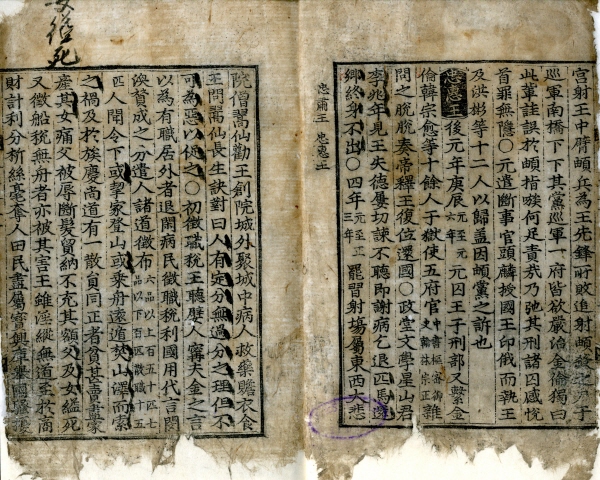 宮射王中臂頔兵為王先鋒所敗追射頔
巡軍南橋下下其黨巡軍一府皆欲嚴治金倫獨曰
此輩詿誤於頔指嗾何足責哉乃弛其刑諸囚感悅
首罪無隱○元遣斷事官頭麟授國王印俄而執王
及洪彬等十二人以歸盖因頔黨之訴也
忠惠王後元年庚辰元至元六年元囚王于刑部又繫金
倫韓宗愈等十餘人于獄使五府官中書樞密御史翰林宗正雜
問之脫脫奏帝釋王復位還國○政堂文學星山君
李兆年見王失德屢切諫不聽即謝病乞退匹馬還
鄉終身不出○四年元至正三年罷習射場屬東西大悲
忠肅王 忠惠王
院僧翯仙勸王創院城外聚城中病人救藥贍衣食
王問翯仙長生訣對曰人有定分無過分之理但不
可為惡以促之○初徵職稅王聽嬖人甯夫金之言
以為有職居外者退閑病民徵職稅利國用代言閔
渙贊成之分遣人諸道徵布六品以上百五十匹七品以下百匹散職十五
匹人聞令下或挈家登山或乘舟遠遁焚山澤而索
之禍及於族慶尚道有一散員同正者貧甚賣家
產其女痛父被辱斷髮買納不充其額父及女縊死
又徵船稅無舟者亦被其害王雖淫縱無道至於商
財計利分析絲毫奪人田民盡屬寶興庫